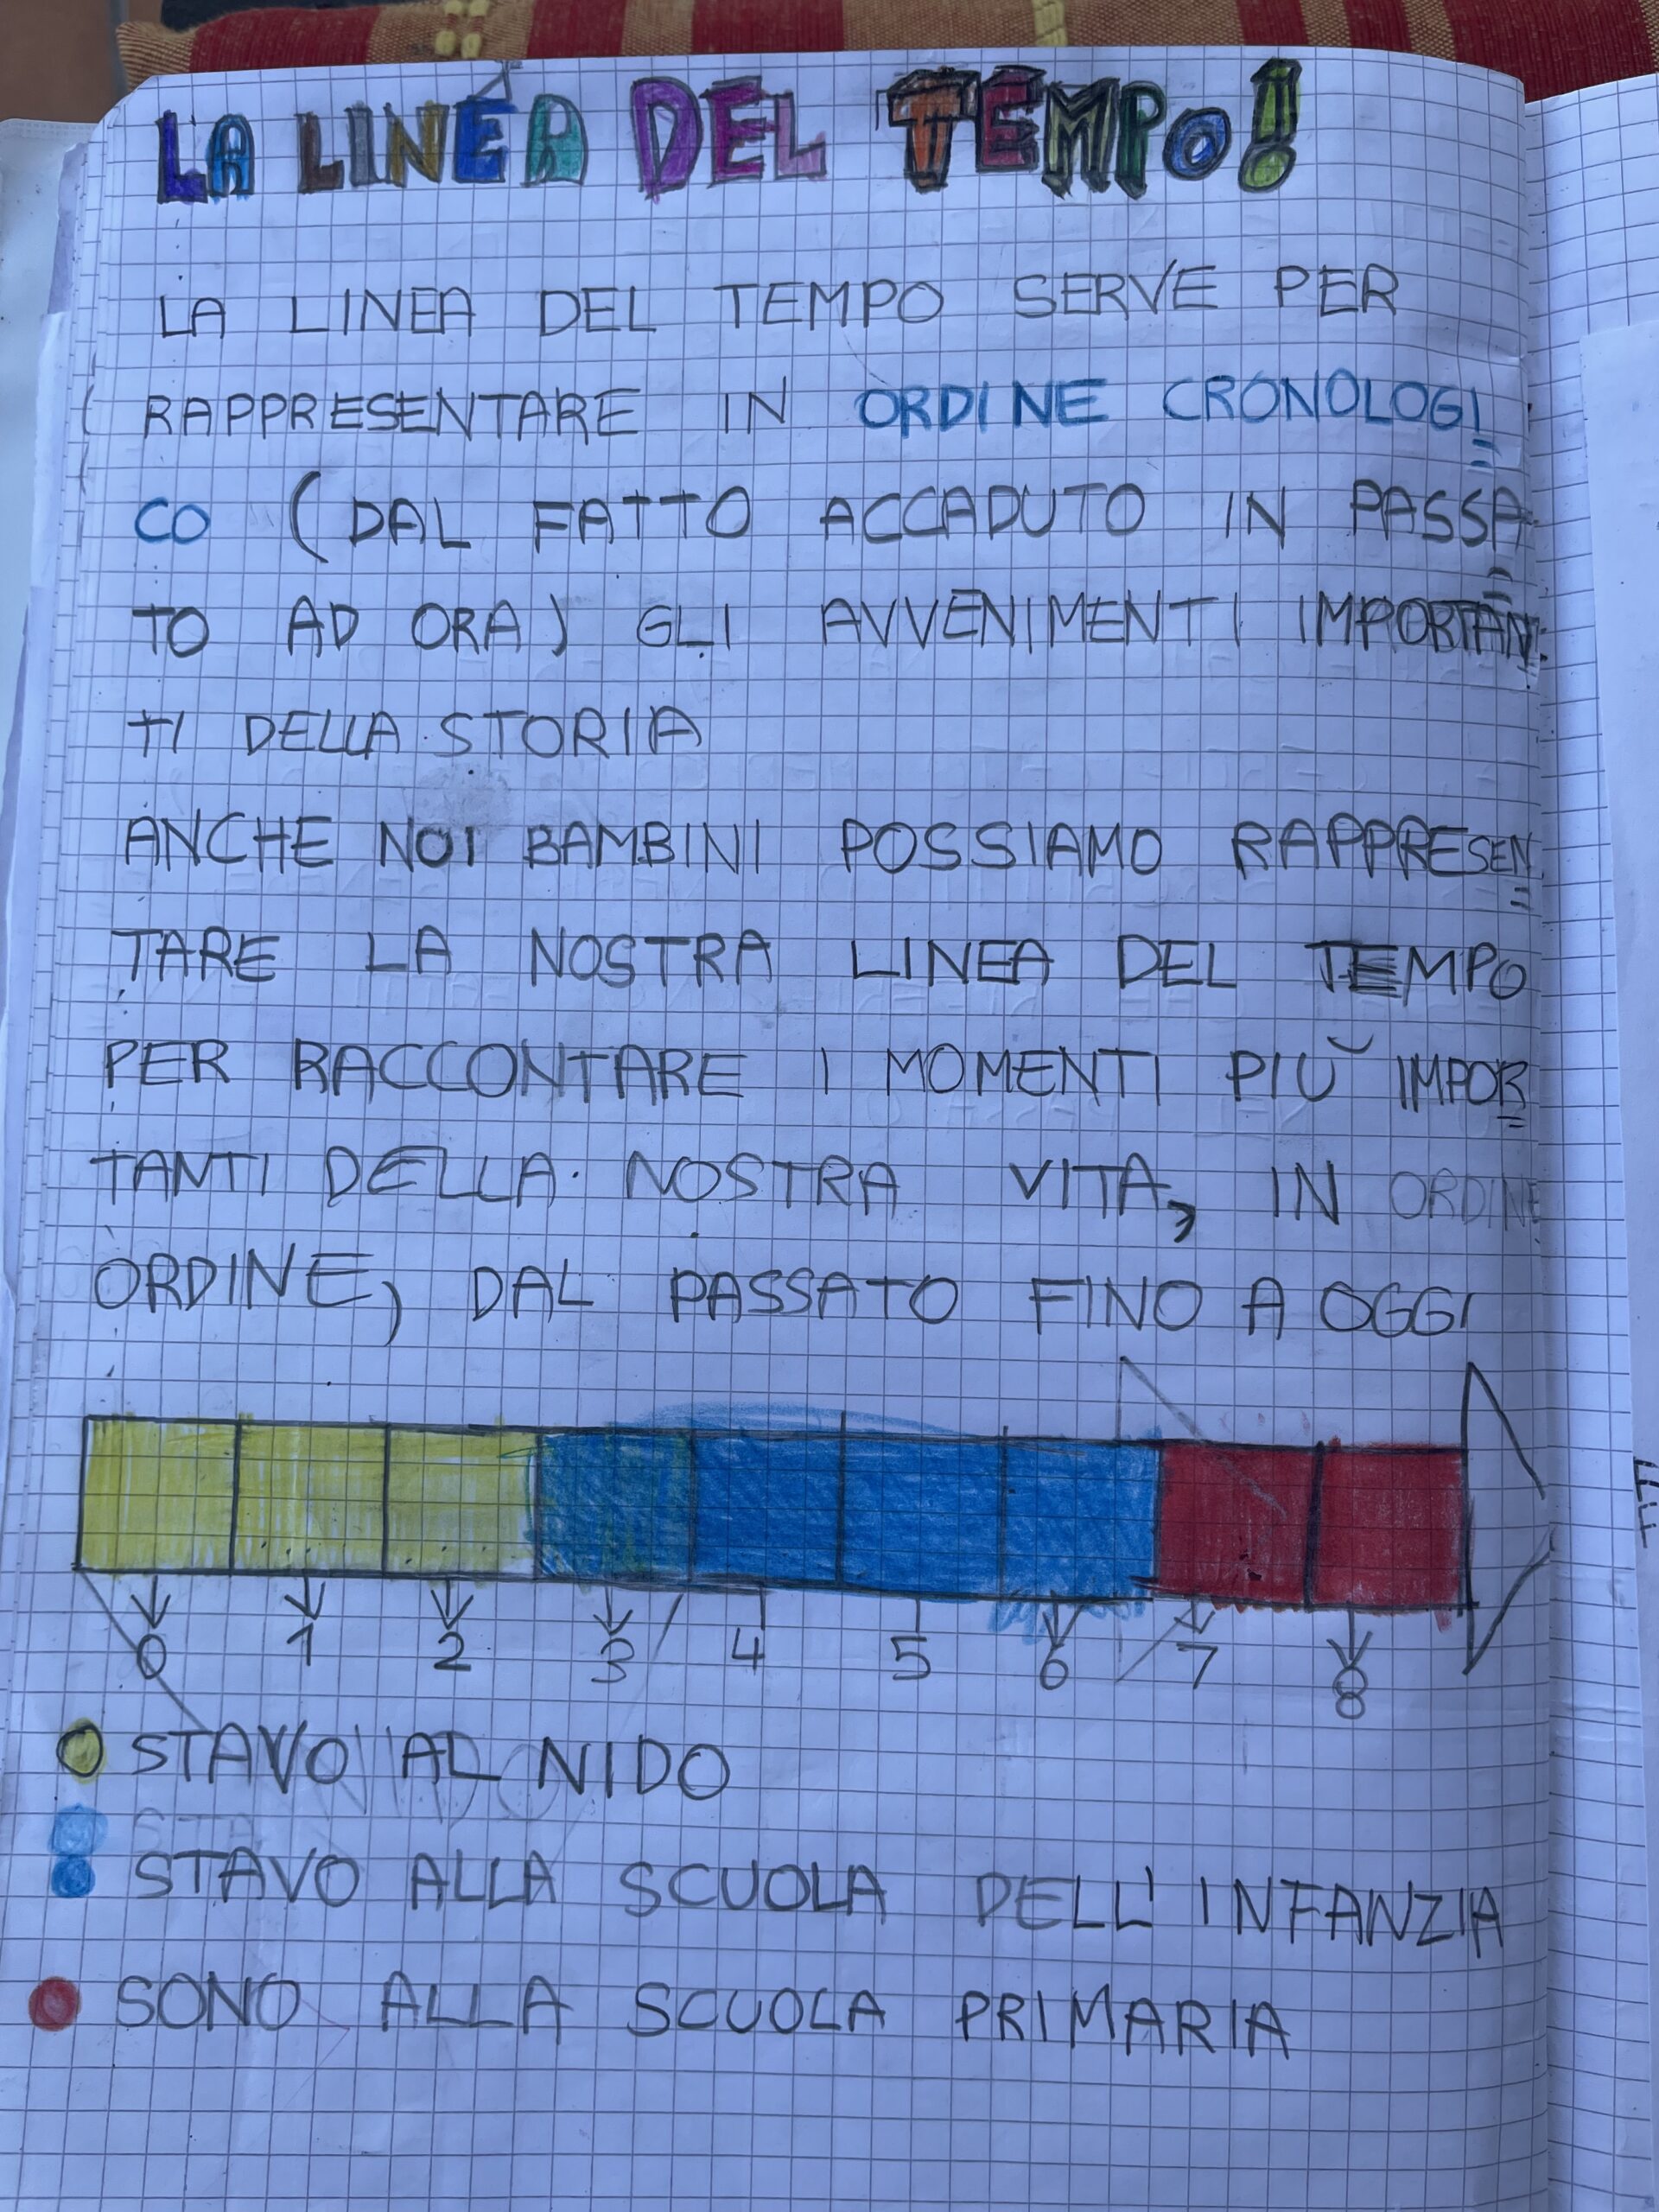 LA LINEA DEL TEMPO!
LA LINEA DEL TEMPO SERVE PER
RAPPRESENTARE IN ORDINE CRONOLOGI
CO (DAL FATTO ACCADUTO IN PASSA
TO AD ORA) GLI AVVENIMENTI IMPORTAN
TI DELLA STORIA
ANCHE NOI BAMBINI POSSIAMO RAPPRESEN
TARE LA NOSTRA LINEA DEL TEMPO
PER RACCONTARE I MOMENTI PIÙ IMPOR
TANTI DELLA NOSTRA VITA, IN ORDINE
ORDINE, DAL PASSATO FINO A OGGI
0 1 2 3 4 5 6 7 8
STAVO AL NIDO
STAVO ALLA SCUOLA DELL'INFANZIA
SONO ALLA SCUOLA PRIMARIA